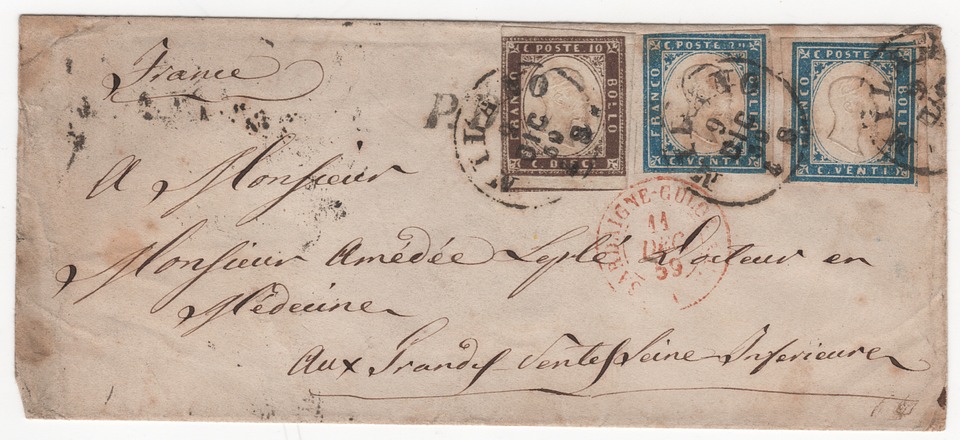 France
C. POSTE 10
FRANCO
BOLLO
C. POSTE 20
FRANCO
C. VENTI
C. POSTE
FRANCO
BOLLO
C. VENTI
MILANO
9
DIC
MILANO
9
DIC
A Monsieur
SARDAIGNE-CULOZ
11
DEC
59
Monsieur Amédée Leplé Docteur en
Médecine
Aux Grandes Ventes Seine Inferieure